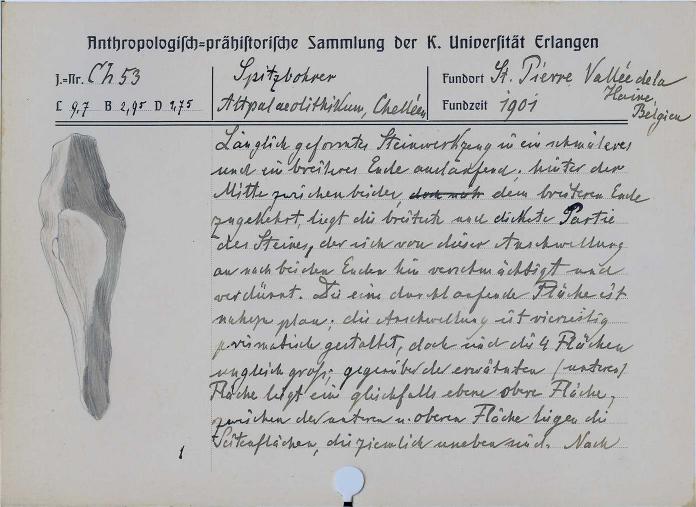 Anthropologisch=prähistorische Sammlung der K. Universität Erlangen
J.=Nr. Ch 53
L 9,7 B 2,95 D 1,75
Spitzbohrer
Altpalaeolithikum, Chelléen
Fundort St. Pierre Vallée de la Haine, Belgien
Fundzeit 1901
Länglich geformtes Steinwerkzeug in ein schmäleres
und ein breiteres Ende auslaufend; hinter der
Mitte zwischen beiden, dem breiteren Ende
zugekehrt, liegt die breiteste und dickste Partie
des Steines, der sich von dieser Anschwellung
an nach beiden Enden hin verschmächtigt und
verdünnt. Die eine durchlaufende Fläche ist
nahezu plan; die Anschwellung ist vierseitig
prismatisch gestaltet, doch sind die 4 Flächen
ungleich gross; gegenüber der erwähnten (unteren)
Fläche liegt eine gleichfalls ebene obere Fläche,
zwischen der unteren u. oberen Fläche liegen die
Seitenflächen, die ziemlich uneben sind. Nach
1